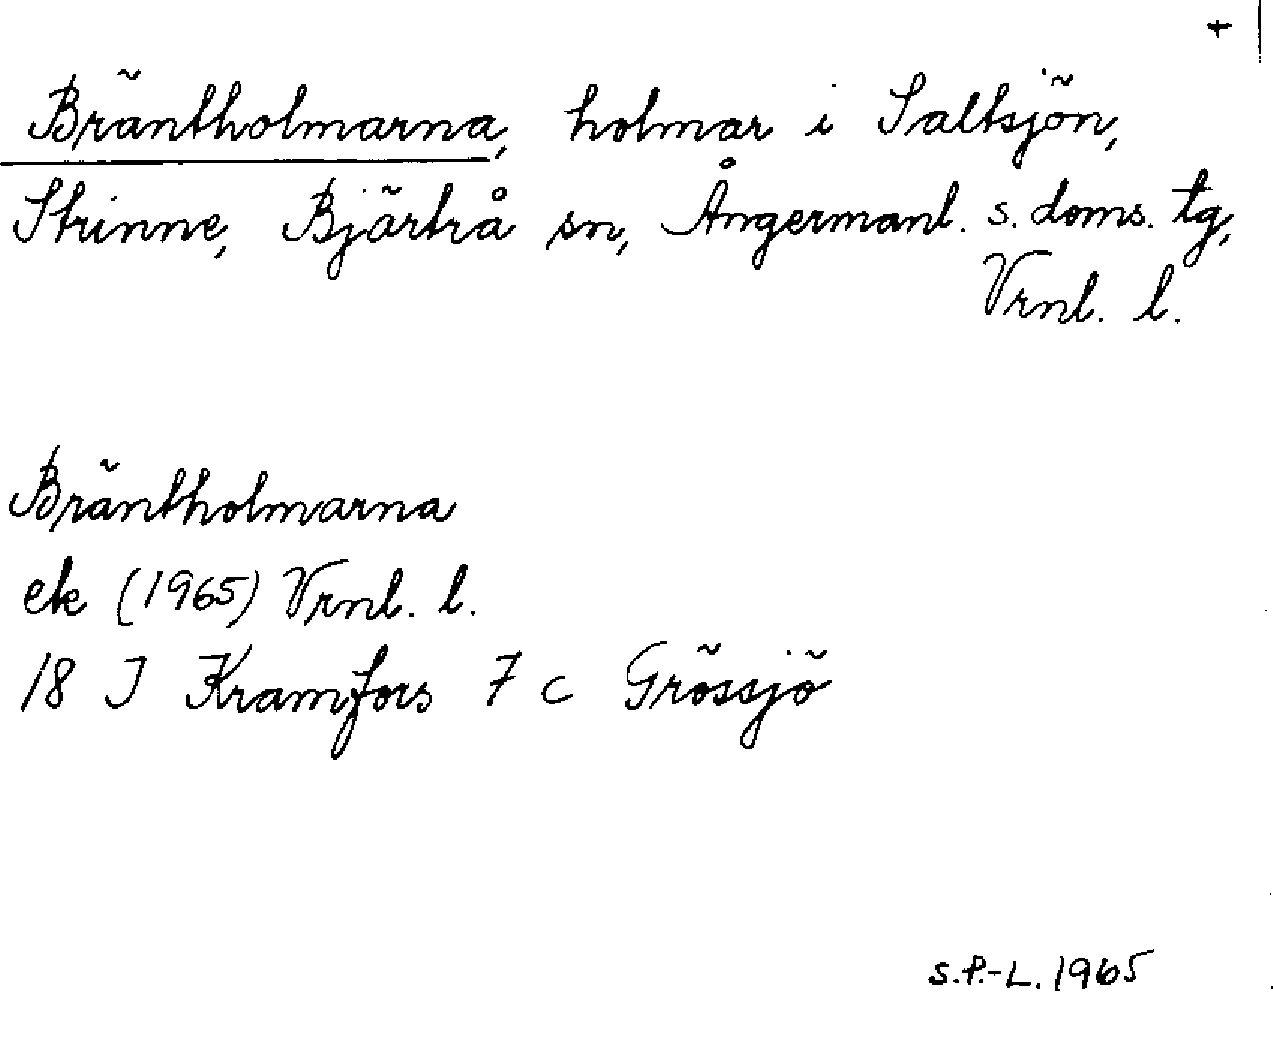 +
Bräntholmarna, holmar i Saltsjön,
Strinne, Bjärtrå sn, Ångermanl. s. doms. tg,
Vrnl. l.
Bräntholmarna
ek (1965) Vrnl. l.
18 J Kramfors 7 c Grössjö
S.P.-L. 1965